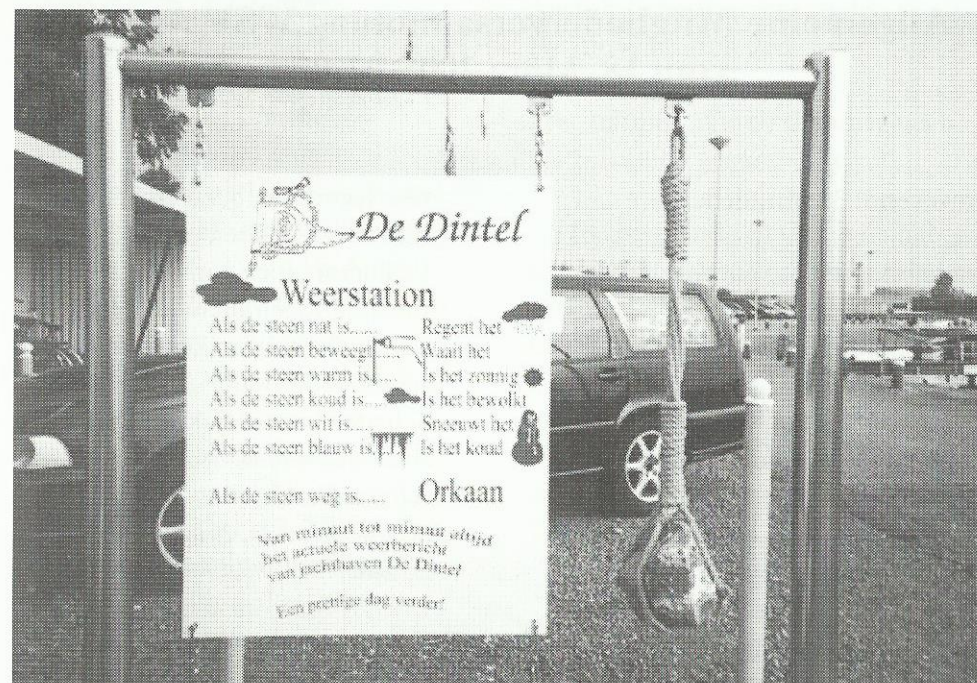 De Dintel
Weerstation
Als de steen nat is...... Regent het
Als de steen beweegt..... Waait het
Als de steen warm is..... Is het zonnig
Als de steen koud is..... Is het bewolkt
Als de steen wit is...... Sneeuwt het
Als de steen blauw is..... Is het koud
Als de steen weg is...... Orkaan
Van minuut tot minuut altijd
het actuele weerbericht
van jachthaven De Dintel
Een prettige dag verder!